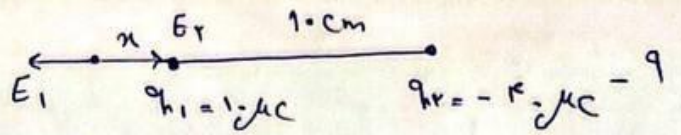 x E۲ ۱۰ cm
E۱ q۱ = ۱۰ μC q۲ = - ۴۰ μC - ۹